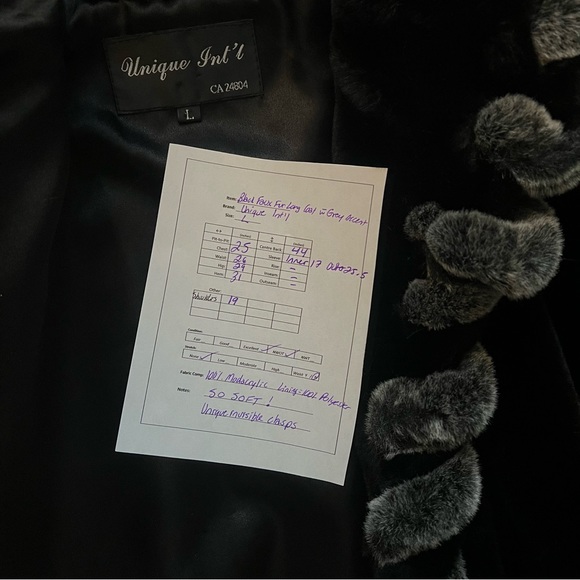 Unique Int'l
CA 24804
L
Item: Black Faux Fur Long Coat w Grey Accent
Brand: Unique Int'l
Size: L
Pit-to-Pit 25 Centre Back 44
Chest Sleeve Inner 17 Outer 25.5
Waist 26 Rise -
Hip 29 Inseam -
Hem 31 Outseam -
Other:
Shoulders 19
Condition:
Fair Good Excellent NWOT NWT
Stretch:
None Low Moderate High
Fabric Comp: 100% Modacrylic Lining: 100% Polyester
Notes: SO SOFT!
Unique invisible clasps